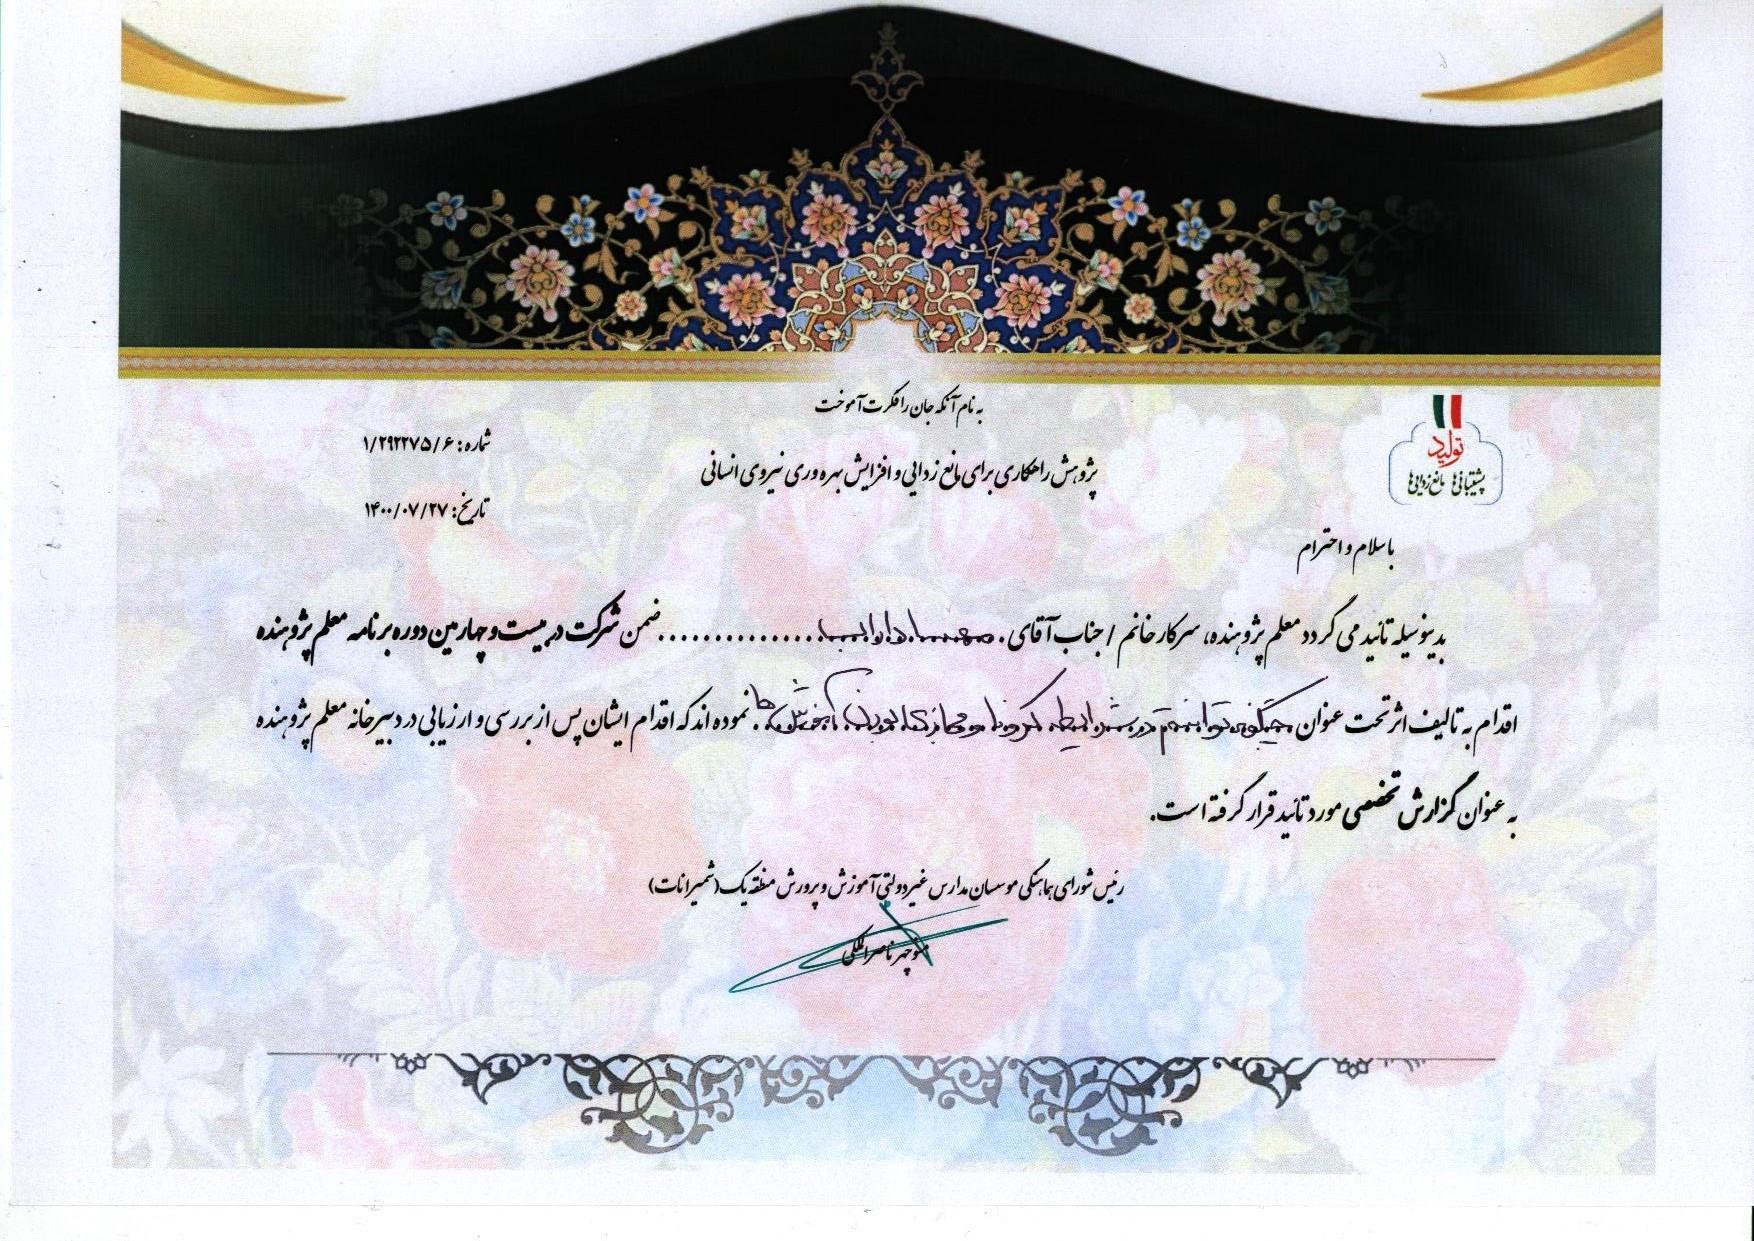 به نام آنکه جان را فکرت آموخت
شماره: ۱/۲۹۲۲۷۵/۶
پژوهش راهکاری برای مانع زدایی و افزایش بهره وری نیروی انسانی
تاریخ: ۱۴۰۰/۰۷/۲۷
تولید
پشتیبانی‌ها مانع‌زدایی‌ها
با سلام و احترام
بدینوسیله تائید می گردد معلم پژوهنده، سرکار خانم / جناب آقای ضمن شرکت در بیست و چهارمین دوره برنامه معلم پژوهنده
اقدام به تالیف اثر تحت عنوان چگونه توانستم در شرایط کرونا و مجازی بودن آموزش نموده اند که اقدام ایشان پس از بررسی و ارزیابی در دبیرخانه معلم پژوهنده
به عنوان گزارش تخصصی مورد تائید قرار گرفته است.
رئیس شورای هماهنگی موسسان مدارس غیردولتی آموزش و پرورش منطقه یک (شمیرانات)
منوچهر ناصرالملکی